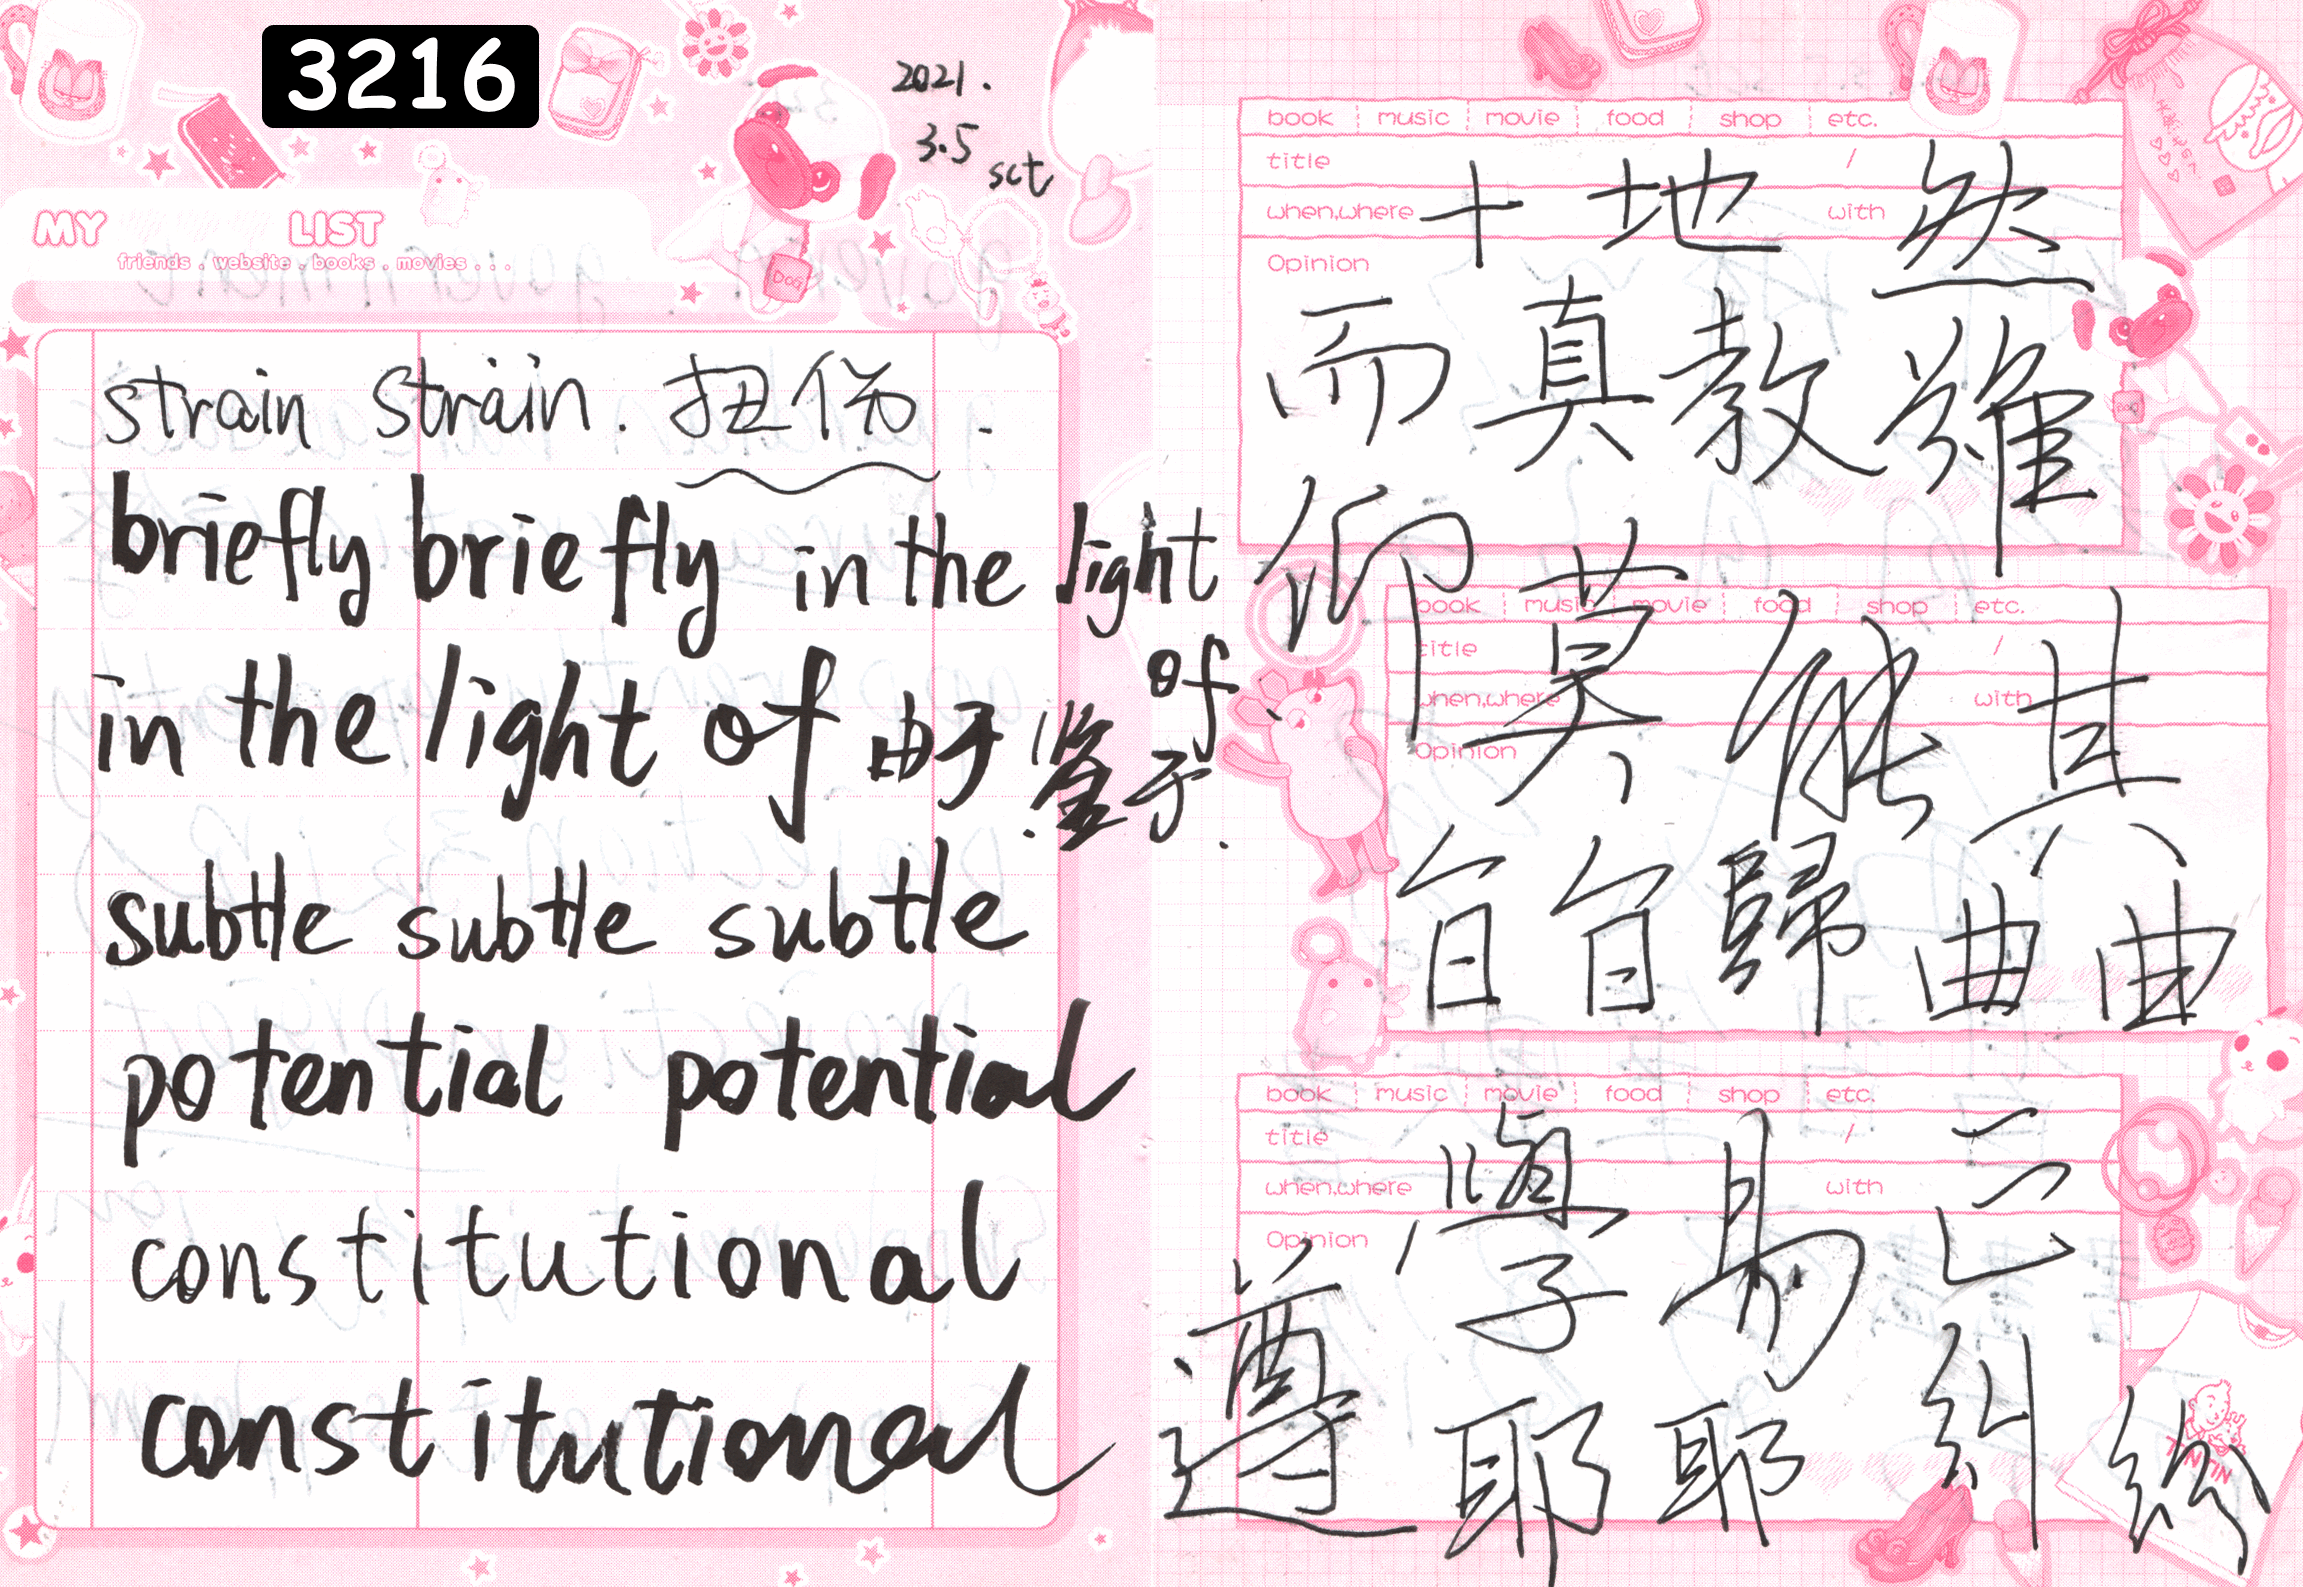 3216
2021.
3.5
sct
MY LIST
friends . website . books . movies . . .
DOG
strain strain. 扭伤.
briefly briefly in the light of
in the light of 由于 鉴于.
subtle subtle subtle
potential potential
constitutional
constitutional
book music movie food shop etc.
title /
when,where with
Opinion
十 地 然
而 真 教 雖
book music movie food shop etc.
title /
when,where with
Opinion
仰 莫 能 其
旨 旨 歸 曲 曲
book music movie food shop etc.
title /
when,where with
Opinion
學 易 云
遵 耶 耶 糾 紛